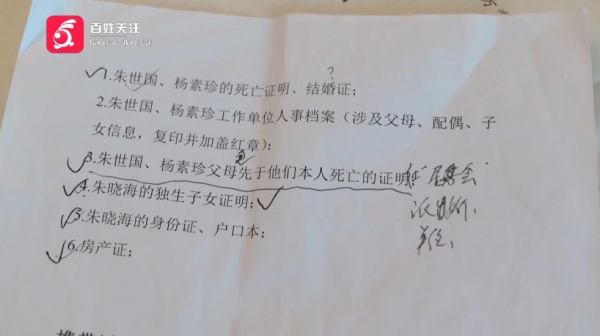 百姓关注
?
1.朱世国、杨素珍的死亡证明、结婚证;
2.朱世国、杨素珍工作单位人事档案（涉及父母、配偶、子
女信息，复印并加盖红章）;
3.朱世国、杨素珍父母先于他们本人死亡的证明
居委会
派出所、
单位、
4.朱晓海的独生子女证明;
5.朱晓海的身份证、户口本;
6.房产证;